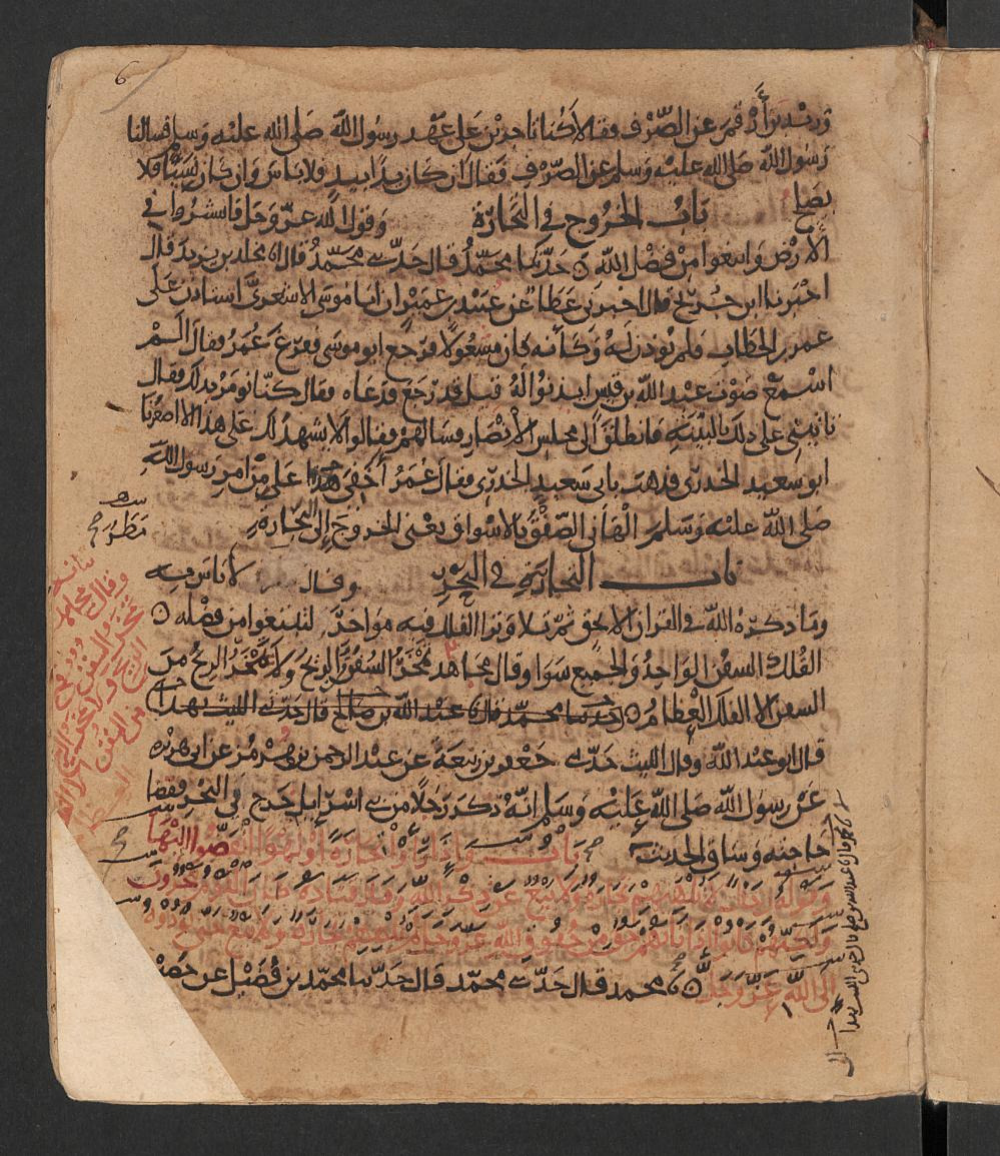 6
وزيد بن أرقم عن الصرف فقالا كنا تاجرين على عهد رسول الله صلى الله عليه وسلم فسالنا
رسول الله صلى الله عليه وسلم عن الصرف فقال ان كان يدا بيد فلا باس وان كان نسيا فلا
يصلح باب الخروج في التجارة وقول الله عز وجل فانتشروا في
الارض وابتغوا من فضل الله حدثنا محمد قال حدثني محمد قال انا مخلد بن يزيد قال
اخبرنا ابن جريج قال اخبرني عطا عن عبيد بن عمير ان ابا موسى الاشعري استاذن على
عمر بن الخطاب فلم يوذن له وكانه كان مشغولا فرجع ابو موسى ففرغ عمر فقال الم
اسمع صوت عبد الله بن قيس ايذنوا له قيل قد رجع فدعاه فقال كنا نومر بذلك فقال
تاتيني على ذلك بالبينة فانطلق الى مجلس الانصار فسالهم فقالوا لا يشهد لك على هذا الا اصغرنا
ابو سعيد الخدري فذهب بابي سعيد الخدري فقال عمر أخفي هذا علي من امر رسول الله
صلى الله عليه وسلم الهاني الصفق بالاسواق يعني الخروج إلى التجارة
باب التجارة في البحر وقال مطر لا باس به
وما ذكره الله في القران الا بحق ثم تلا وترا الفلك فيه مواخر لتبتغوا من فضله
الفلك السفن الواحد والجميع سوا وقال مجاهد تمخر السفن الريح ولا تمخر الريح من
السفن الا الفلك العظام حدثنا محمد قال عبد الله بن صالح قال حدثني الليث بهذا
قال ابو عبد الله وقال الليث حدثني جعفر بن ربيعة عن عبد الرحمن بن هرمز عن ابي هريرة
عن رسول الله صلى الله عليه وسلم انه ذكر رجلا من بني اسرايل خرج في البحر فقضا
حاجته وساق الحديث باب واذا راوا تجارة او لهوا انفضوا اليها
وقوله رجال لا تلهيهم تجارة ولا بيع عن ذكر الله وقال قتادة كان القوم يتجرون
ولكنهم كانوا اذا نابهم حق من حقوق الله عز وجل لم تلههم تجارة ولا بيع حتى يودوه
الى الله عز وجل محمد قال حدثني محمد قال حدثنا محمد بن فضيل عن حصين